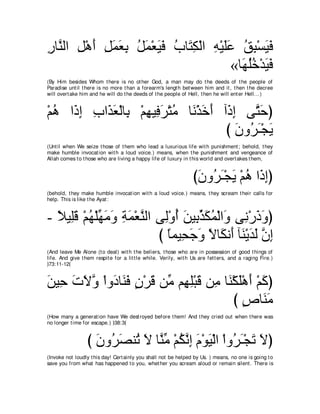 فَيَسْبِقُ عَلَيْهِ الْكِتَابُ فَيَعْمَلُ بِعَمَلِ أَهْلِ النَّارِ
فَيَدْخُلُهَا»
(By Him besides Whom there is no other God, a man may do the deeds of the people of Paradise until there is no more than a forearm's length between him and it, then the decree will overtake him and he will do the deeds of the people of Hell, then he will enter Hell...)
(حَتَّى إِذَآ أَخَذْنَا مُتْرَفِيهِمْ بِالْعَذَابِ إِذَا هُمْ
يَجْـَرُونَ )
(Until when We seize those of them who lead a luxurious life with punishment; behold, they make humble invocation with a loud voice.) means, when the punishment and vengeance of Allah comes to those who are living a happy life of luxury in this world and overtakes them,
(إِذَا هُمْ يَجْـَرُونَ)
(behold, they make humble invocation with a loud voice.) means, they scream their calls for help. This is like the Ayat:
(وَذَرْنِى وَالْمُكَذِّبِينَ أُوْلِى النَّعْمَةِ وَمَهِّلْهُمْ قَلِيلاً -
إِنَّ لَدَيْنَآ أَنكَالاً وَجَحِيماً )
(And leave Me Alone (to deal) with the beliers, those who are in possession of good things of life. And give them respite for a little while. Verily, with Us are fetters, and a raging Fire.) )73:11-12(
(كَمْ أَهْلَكْنَا مِن قَبْلِهِم مِّن قَرْنٍ فَنَادَواْ وَّلَاتَ حِينَ
مَنَاصٍ )
(How many a generation have We destroyed before them! And they cried out when there was no longer time for escape.) )38:3(
(لاَ تَجْـَرُواْ الْيَوْمَ إِنَّكُمْ مِّنَّا لاَ تُنصَرُونَ )
(Invoke not loudly this day! Certainly you shall not be helped by Us.) means, no one is going to save you from what has happened to you, whether you scream aloud or remain silent. There is